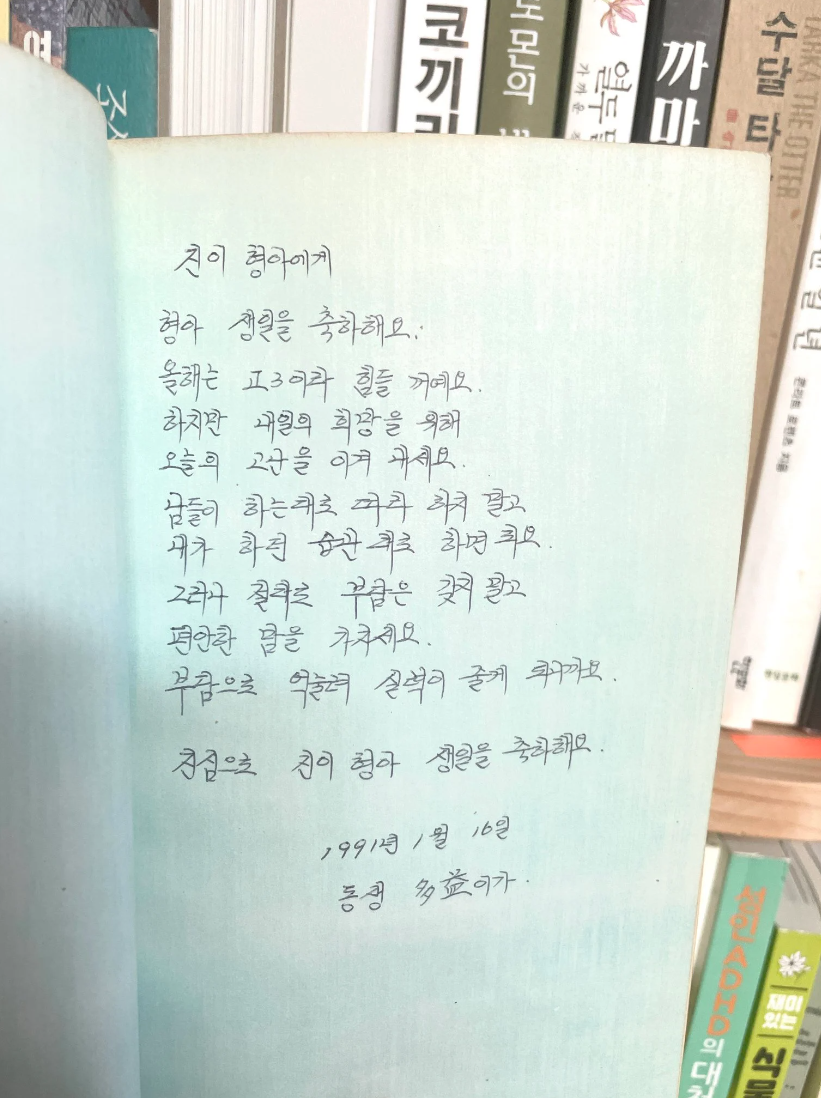 코끼리
까마
수달 타
TARKA THE OTTER
진이 형아에게
형아 생일을 축하해요.
올해는 고3이라 힘들 꺼예요.
하지만 내일의 희망을 위해
오늘의 고난을 이겨 내세요.
남들이 하는대로 따라 하지 말고
내가 하던 습관 대로 하면 돼요.
그러나 절대로 부담은 갖지 말고
편안한 맘을 가지세요.
부담으로 억눌려 실력이 줄게 되니까요.
진심으로 진이 형아 생일을 축하해요.
1991년 1월 16일
동생 多益이가.
성인 ADHD의 대처
재미있는 식물